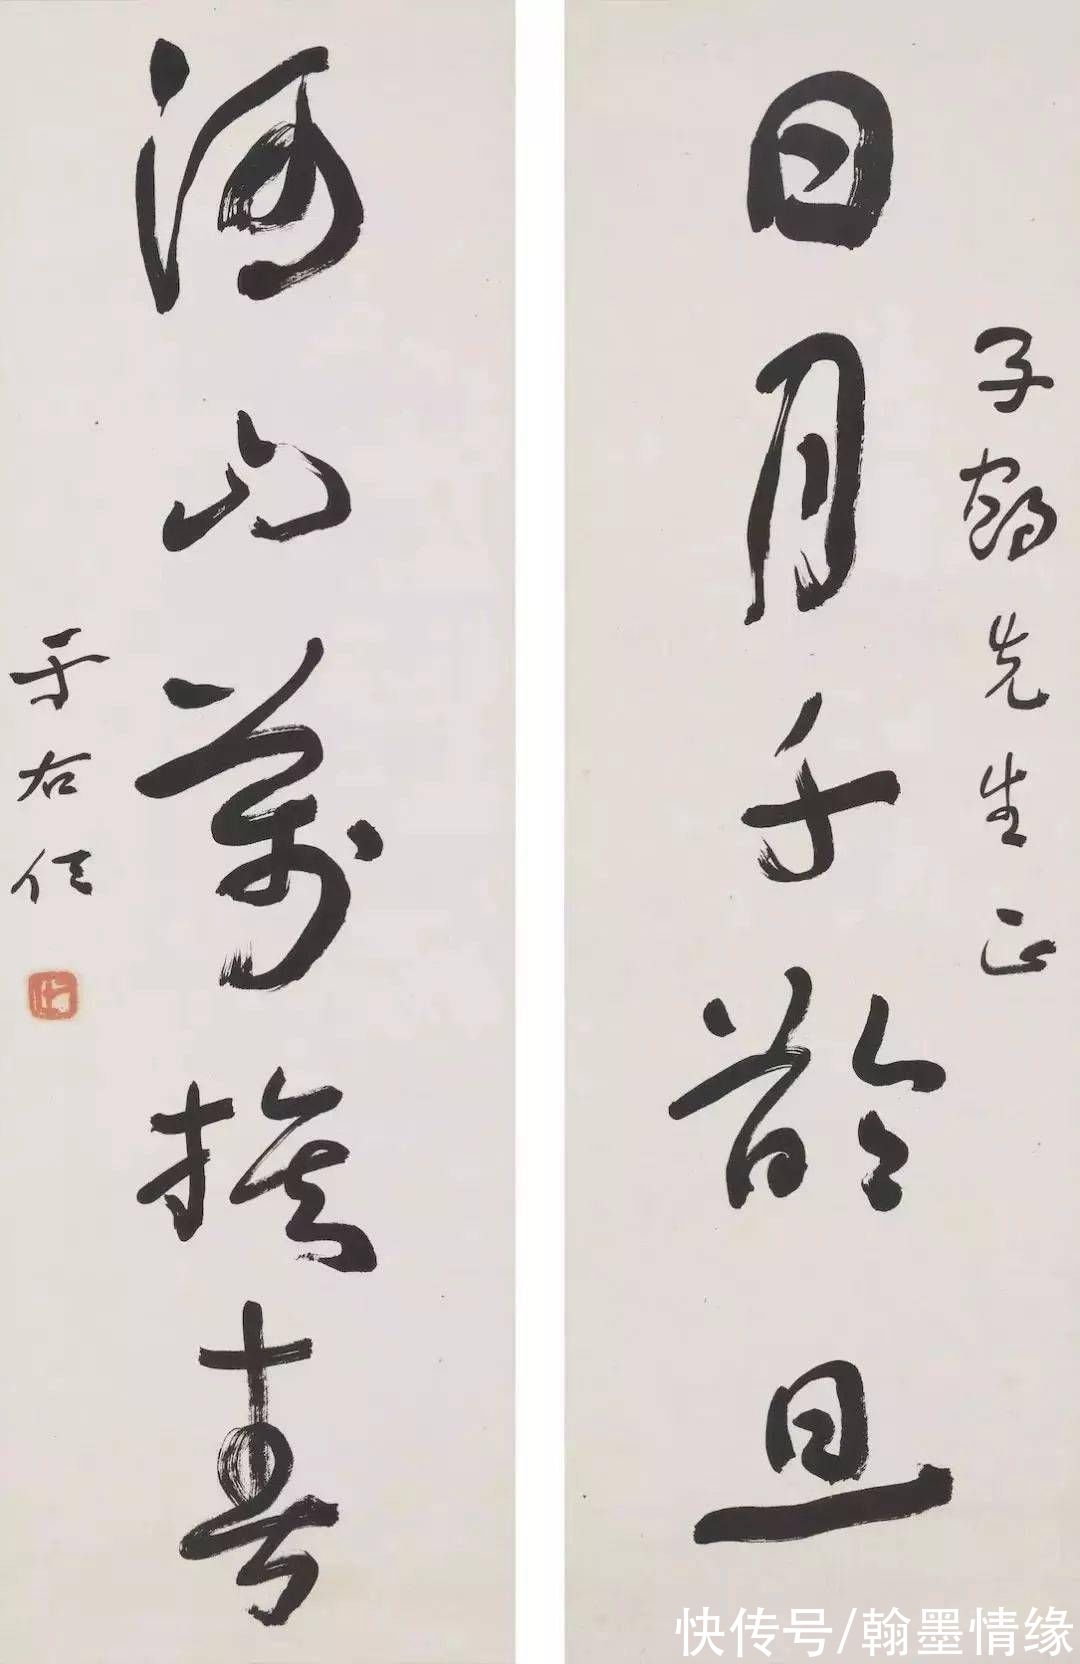 子鶴先生正
日月千齡旦
河山萬族春
于右任
快传号/翰墨情缘